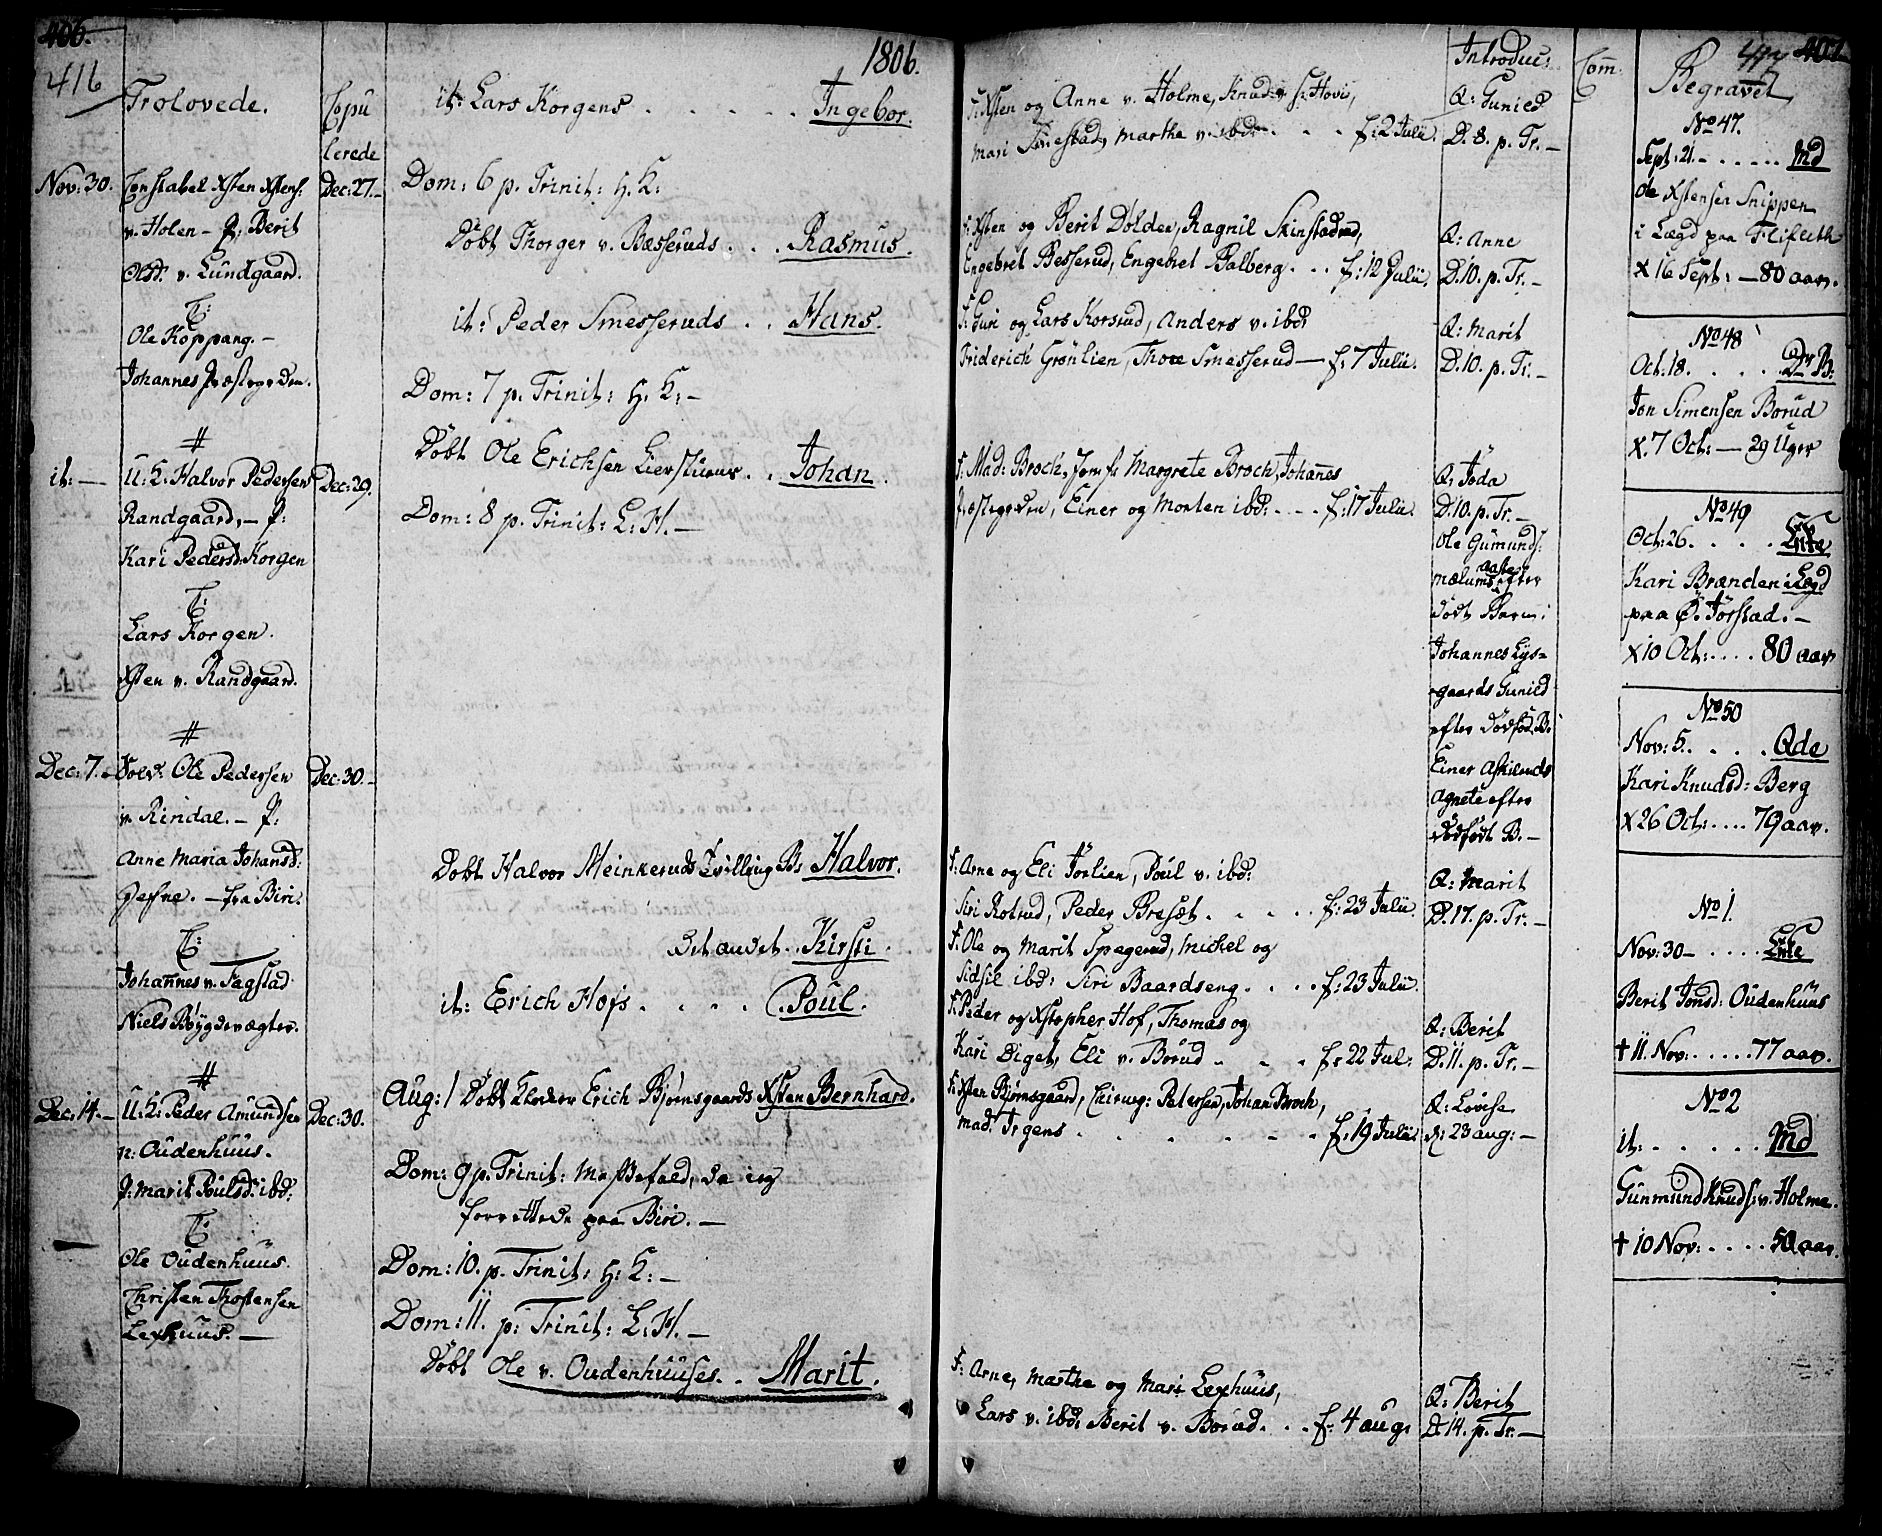 406.
416
Trolovede.
Copu
lerede
Nov: 30. Constabel Xsten Xstens: Dec: 27.-
v. Holen - P: Berit
Olsd: v. Lundgaard.
C:
Ole Koppang. -
Johannes Præstegrden.
#
it: — U: K: Halvor Pedersen Dec: 29.
Randgaard, - P:
Kari Pedersd: Korgen
C:
Lars Korgen.
Xsten v. Randgaard.
#
Dec: 7. - Sold: Ole Pedersen Dec: 30. -
v. Rindal. - P:
Anne Maria Johansd:
- fra Biri.
C:
Johannes v. Fagstad
Niels Böygdevægter.
#
Dec: 14. - U: K: Peder Amundsen Dec: 30.
n: Oudenhuus.
P: Marit Poulsd: ibd:
C:
Ole Oudenhuus.
Christen Thostensen
Lexhuus. —
1806.
it: Lars Korgens . . . . . Ingebor.
Dom: 6 p. Trinit: H. K:
Döbt Thorger v. Bæsseruds . . . Rasmus.
it: Peder Smesseruds . . Hans.
Dom: 7 p. Trinit: H. K: -
Döbt Ole Erichsen Lierstuens . . Johan.
Dom: 8 p. Trinit: L: H. -
Döbt Halvor Meinkeruds Tvilling B: Halvor.
Det andet . Kirsti.
it: Erich Hofs . . . . Poul.
Aug: 1 Döbt Klokker Erich Bjørnsgaards Xsten Bernhard.
Dom: 9 p. Trinit: Messefald, da jeg
forrettede paa Biri. —
Dom: 10. p. Trinit: H: K: -
Dom: 11. p: Trinit: L: H. -
Döbt Ole v. Oudenhuuses. . Marit.
F: Xsten og Anne v. Holme, Knud v. S: Hovi,
Mari Finestad, Marthe v. ibd: . . . f: 2 Julii.
F: Xsten og Berit Dolden, Ragnil Skinstad,
Engebret Besserud, Engebret Balberg . . . f: 12 Julii.
F: Guri og Lars Korsrud, Anders v. ibd
Friderich Grönlien, Thore Smesserud — f: 7 Julii.
F: Mad: Broch, Jomfr: Margrete Broch, Johannes
Præstegrden, Einer og Morten ibd: . . . f: 17 Julii.
F: Arne og Eli Jörlien, Poul v. ibd:
Siri Rotrud, Peder Bresæt . . . . . f: 23 Julii.
F: Ole og Marit Spegerud, Michel og
Sidsil ibd: Siri Baardseng . . . . f: 23 Julii.
F: Peder og Xstopher Hof, Thomas og
Kari Diget, Eli v. Borud . . . f: 22 Jul:
F: Xsten Bjørnsgaard, Chirurg: Petersen, Johan Broch,
Mad: Irgens . . . . . . f: 19 Julii.
F: Arne, Marthe og Mari Lexhuus,
Lars v. ibd: Berit v. Borud. . . f: 4 Aug:
Introduc:
Q: Gunild
D. 8. p. Tr. -
Q: Anne
D. 10. p. Tr. -
Q: Marit
D. 10. p. Tr. -
Q: Joda
D. 10. p. Tr. -
Ole Gumunds:
Mælums Aase efter
Dödt Barn:
Johannes Lys-
gaards Gunild
efter dödföd B:
Einer Askeruds
Agnete efter
dödfödt B. -
Q: Marit
D. 17. p. Tr: -
Q: Berit
D. 11. p. Tr. -
Q: Lovise
d: 23 Aug: -
Q: Berit
D. 14. p. Tr. —
Com:
407.
417
Begravet
No 47.
Sept: 21. - . . . . . Md
Ole Xstensen Snippen
i Lægd paa Flifeith
X 16 Sept: - 80 aar.
No 48
Oct: 18. . . . . Dr: B:
Jon Simensen Borud
X. 7 Oct: — 29 Uger
No 49
Oct: 26. . . . . Enke
Kari Brænden i Lægd
paa Ö: Jörstad. -
X 10 Oct: . . . . 80 aar
No 50
Nov: 5. . . . . Qde
Kari Knudsd: Berg
X 26 Oct: . . . . 79 aar.
No 1.
Nov: 30 - . . . . . Enke
Berit Jonsd: Oudenhuus
† 11. Nov: . . . . . 77 aar.
No 2
it: . . . . . . Md
Gunmund Knuds: v. Holme.
† 10 Nov: . . . . 50 aar.